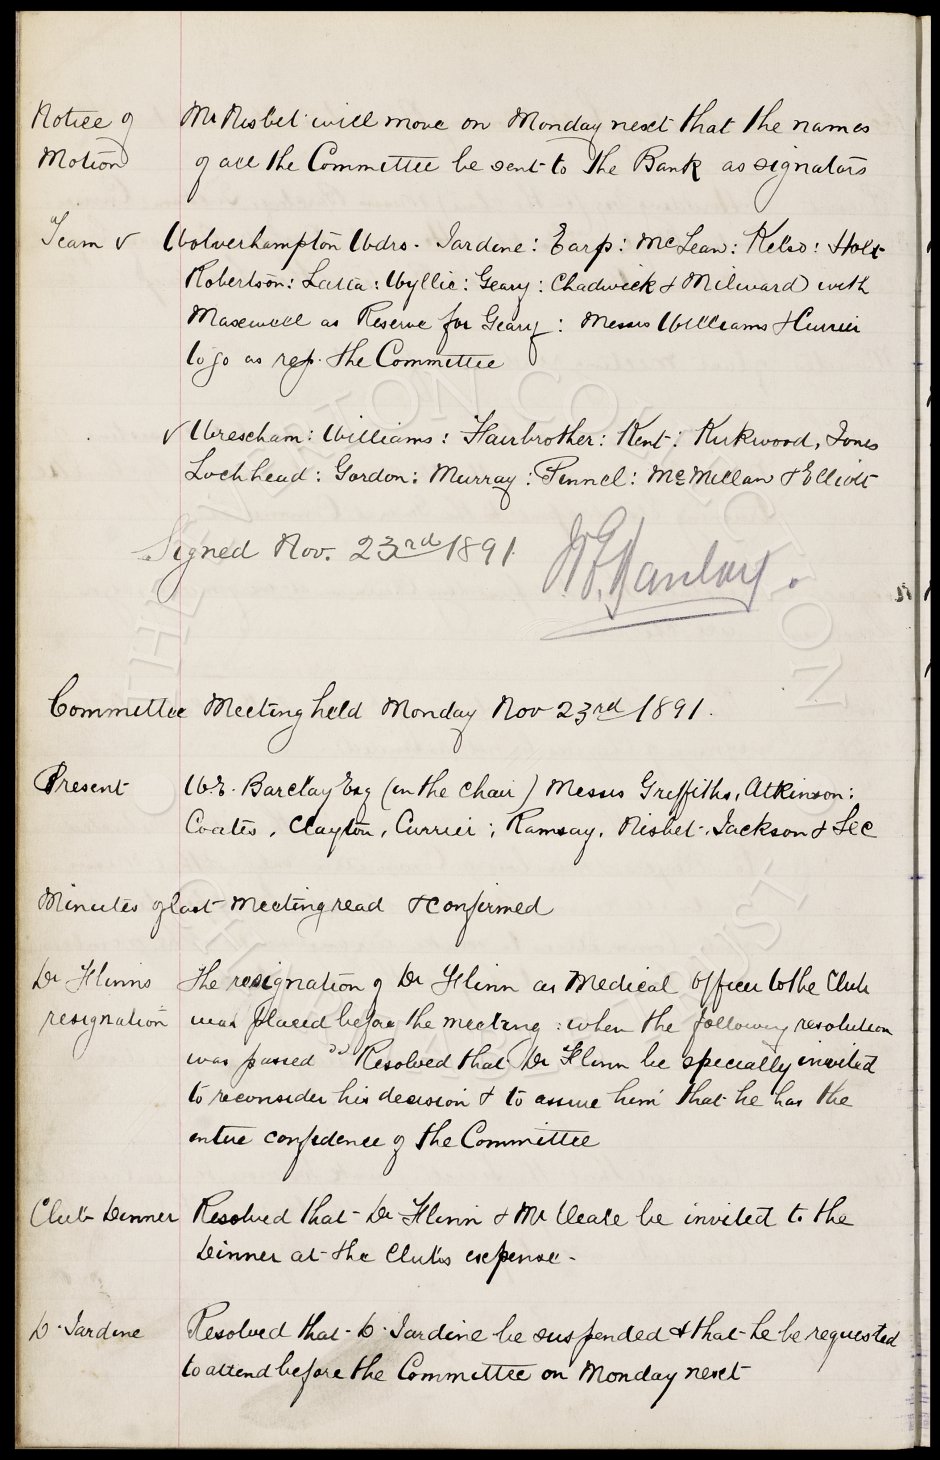 Notice of Mr Nisbet will move on Monday next that the names
Motion of all the Committee be sent to the Bank as signators
Team v Wolverhampton Wdrs. Jardine: Earp: McLean: Kelso: Holt
Robertson: Latta: Wyllie: Geary: Chadwick & Milward with
Maxwell as Reserve for Geary: Messrs Williams & Currier
to go as rep. the Committee
v Wrexham: Williams: Fairbrother: Kent: Kirkwood, Jones
Lochhead: Gordon: Murray: Pinnel: McMillan & Elliott
Signed Nov. 23rd 1891.
Committee Meeting held Monday Nov 23rd 1891.
Present W.E. Barclay Esq (in the chair) Messrs Griffiths, Atkinson:
Coates, Clayton, Currier; Ramsay, Nisbet, Jackson & Sec
Minutes of last meeting read & confirmed
Dr Flinns The resignation of Dr Flinn as Medical Officer to the Club
resignation was placed before the meeting: when the following resolution
was passed "Resolved that Dr Flinn be specially invited
to reconsider his decision & to assure him that he has the
entire confidence of the Committee
Club Dinner Resolved that Dr Flinn & Mr be invited to the
Dinner at the Clubs expense.
D. Jardine Resolved that D. Jardine be suspended & that he be requested
to attend before the Committee on Monday next
THE EVERTON COLLECTION
CHARITABLE TRUST